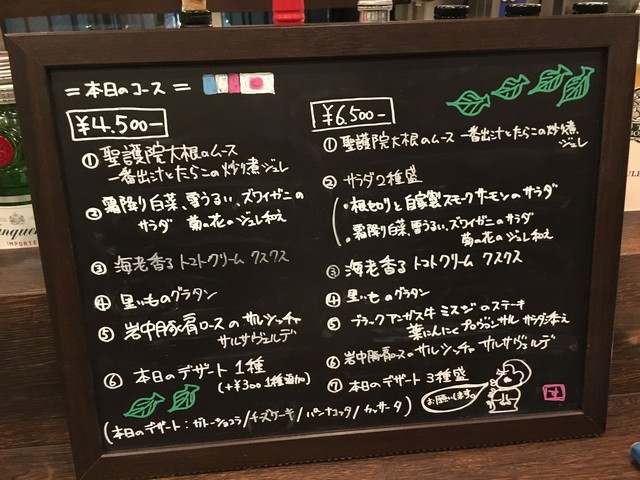 =本日のコース=
¥4.500-
①聖護院大根のムース
一番出汁とたらこの炒り煮ジュレ
②霜降り白菜、雪うるい、ズワイガニの
サラダ 菊の花のジュレ和え
③海老香る トマトクリーム クスクス
④里いものグラタン
⑤岩中豚肩ロースのサルシッチャ
サルサヴェルデ
⑥本日のデザート1種
(+¥300 1種追加)
¥6.500-
①聖護院大根のムース 一番出汁とたらこの炒り煮
ジュレ
②サラダ2種盛
・根セロリと自家製スモークサーモンのサラダ
・霜降り白菜、雪うるい、ズワイガニのサラダ
菊の花のジュレ和え
③海老香る トマトクリーム クスクス
④里いものグラタン
⑤ブラックアンガス牛 ミスジのステーキ
葉にんにく プロヴァンサル サラダ添え
⑥岩中豚肩ロースのサルシッチャ サルサヴェルデ
⑦本日のデザート 3種盛
お願いします。
(本日のデザート:ガトーショコラ/チーズケーキ/パンナコッタ/カッサータ)
IMPORTED